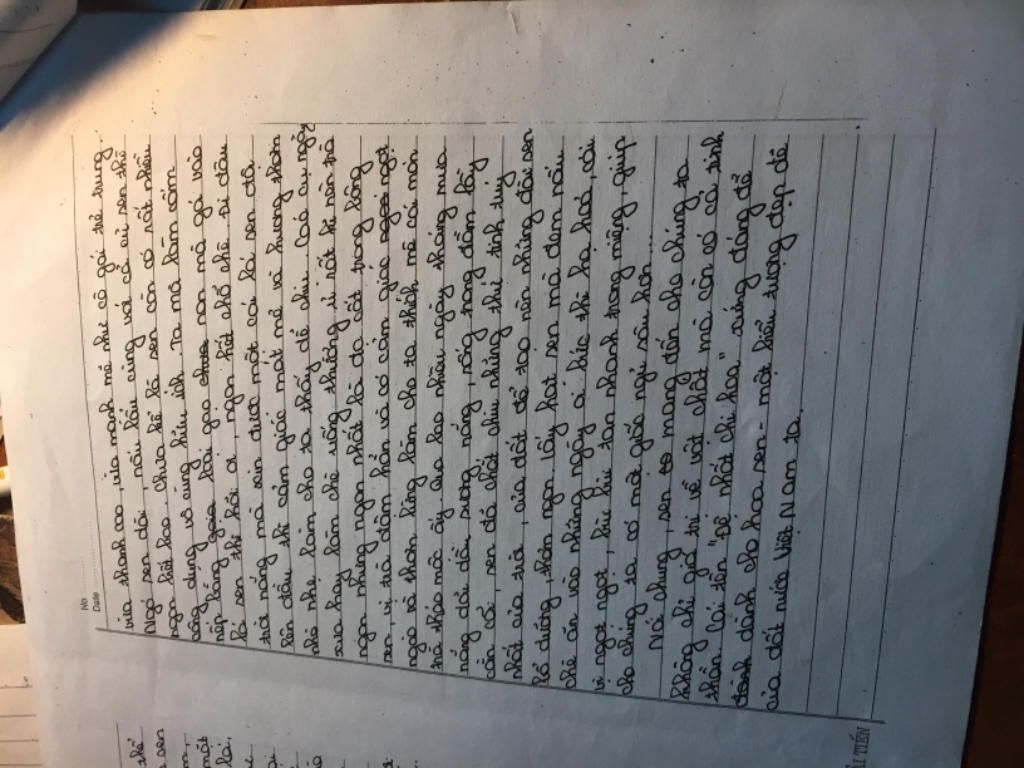 No.
Date
vừa thanh cao, vừa mạnh mẽ như cô gái trẻ trung.
Ngó sen dài, nấu lẩu cùng với cả củ sen thế
ngon hết bao, chưa kể lá sen còn có rất nhiều
công dụng vô cùng hữu ích. Ta mà làm cốm
nếp bằng loại gạo non mà gói vào
lá sen thì hỡi ơi, ngon hết chỗ chê. Đi đâu
trời nóng mà xin được một cái lá sen đội
lên đầu thì cảm giác mát mẻ và hương thơm
nhè nhẹ làm cho ta thấy dễ chịu. Các cụ ngày
xưa hay làm chè uống thưởng, vì rất kì nên trà
ngon nhưng ngon nhất là do cất trong bông
sen, vị trà đậm hẳn và có cảm giác ngọt
ngào và thơm lừng làm cho ta thích mê cái món
trà thảo mộc ấy. Qua bao nhiêu ngày tháng mưa
nắng dãi dầu sương nắng, nóng trong đầm lầy
cằn cỗi, sen đã chắt chiu những thứ tinh tuý
nhất của trời, của đất để tạo nên những đài sen
bổ dưỡng, thơm ngon. Lấy hạt sen mà đem nấu
chè ăn vào những ngày oi bức thì hạ hoả, với
vị ngọt ngọt, bùi bùi tan nhanh trong miệng, giúp
cho chúng ta có một giấc ngủ sâu hơn...
Nói chung, sen mang đến cho chúng ta
không chỉ giá trị về vật chất mà còn có cả tinh
thần. Cái tên "Đệ nhất chi hoa" xứng đáng để
dành cho hoa sen - một biểu tượng đẹp đẽ
của đất nước Việt Nam ta.